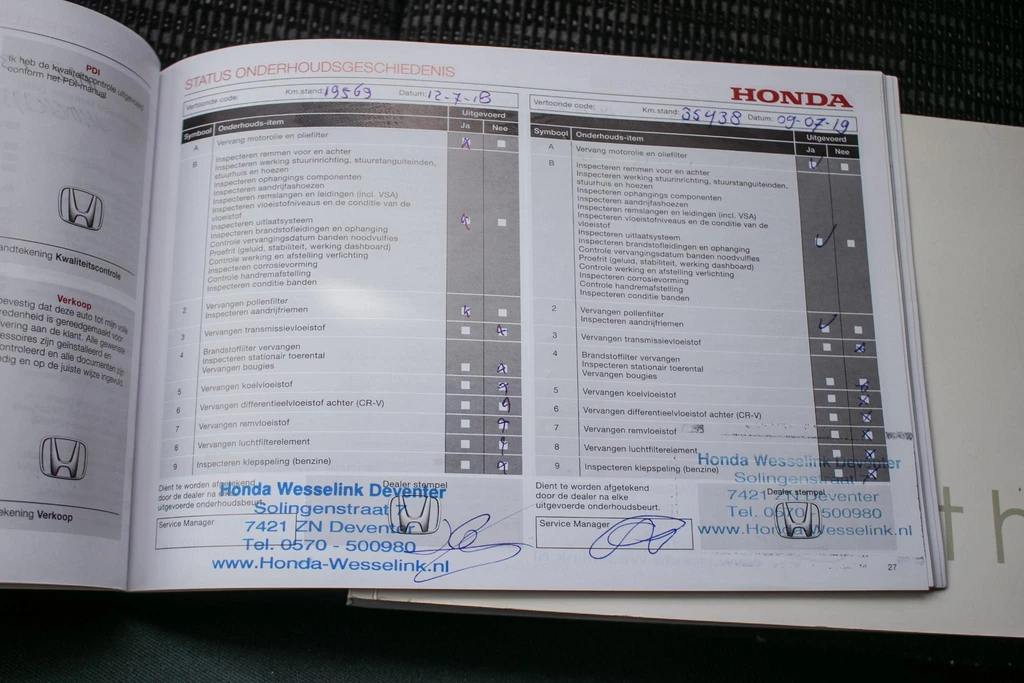 PDI
Ik heb de kwaliteitscontrole uitgevoerd
conform het PDI-manual
Kwaliteitscontrole
Verkoop
dat deze auto tot mijn volle
is gereedgemaakt voor
aan de klant. Alle
zijn geïnstalleerd en
en alle documenten zijn
en op de juiste wijze ingevuld.
Verkoop
STATUS ONDERHOUDSGESCHIEDENIS
Vertoonde code: Km.stand: 19569 Datum: 12-7-18
Symbool Onderhouds-item Uitgevoerd
Ja Nee
A Vervang motorolie en oliefilter
B Inspecteren remmen voor en achter
Inspecteren werking stuurinrichting, stuurstanguiteinden,
stuurhuis en hoezen
Inspecteren ophangings componenten
Inspecteren aandrijfashoezen
Inspecteren remslangen en leidingen (incl. VSA)
Inspecteren vloeistofniveaus en de conditie van de
vloeistof
Inspecteren uitlaatsysteem
Inspecteren brandstofleidingen en ophanging
Controle vervangingsdatum banden noodvulfles
Proefrit (geluid, stabiliteit, werking dashboard)
Controle werking en afstelling verlichting
Inspecteren corrosievorming
Controle handremafstelling
Inspecteren conditie banden
2 Vervangen pollenfilter
Inspecteren aandrijfriemen
3 Vervangen transmissievloeistof
4 Brandstoffilter vervangen
Inspecteren stationair toerental
Vervangen bougies
5 Vervangen koelvloeistof
6 Vervangen differentieelvloeistof achter (CR-V)
7 Vervangen remvloeistof
8 Vervangen luchtfilterelement
9 Inspecteren klepspeling (benzine)
Dient te worden afgetekend
door de dealer na elke
uitgevoerde onderhoudsbeurt.
Dealer stempel
Service Manager
Honda Wesselink Deventer
Solingenstraat 7
7421 ZN Deventer
Tel. 0570 - 500980
www.Honda-Wesselink.nl
HONDA
Vertoonde code: Km.stand: 35438 Datum: 09-07-19
Symbool Onderhouds-item Uitgevoerd
Ja Nee
A Vervang motorolie en oliefilter
B Inspecteren remmen voor en achter
Inspecteren werking stuurinrichting, stuurstanguiteinden,
stuurhuis en hoezen
Inspecteren ophangings componenten
Inspecteren aandrijfashoezen
Inspecteren remslangen en leidingen (incl. VSA)
Inspecteren vloeistofniveaus en de conditie van de
vloeistof
Inspecteren uitlaatsysteem
Inspecteren brandstofleidingen en ophanging
Controle vervangingsdatum banden noodvulfles
Proefrit (geluid, stabiliteit, werking dashboard)
Controle werking en afstelling verlichting
Inspecteren corrosievorming
Controle handremafstelling
Inspecteren conditie banden
2 Vervangen pollenfilter
Inspecteren aandrijfriemen
3 Vervangen transmissievloeistof
4 Brandstoffilter vervangen
Inspecteren stationair toerental
Vervangen bougies
5 Vervangen koelvloeistof
6 Vervangen differentieelvloeistof achter (CR-V)
7 Vervangen remvloeistof
8 Vervangen luchtfilterelement
9 Inspecteren klepspeling (benzine)
Dient te worden afgetekend
door de dealer na elke
uitgevoerde onderhoudsbeurt.
Dealer stempel
Service Manager
Honda Wesselink Deventer
Solingenstraat 7
7421 ZN Deventer
Tel. 0570 - 500980
www.Honda-Wesselink.nl
27
th